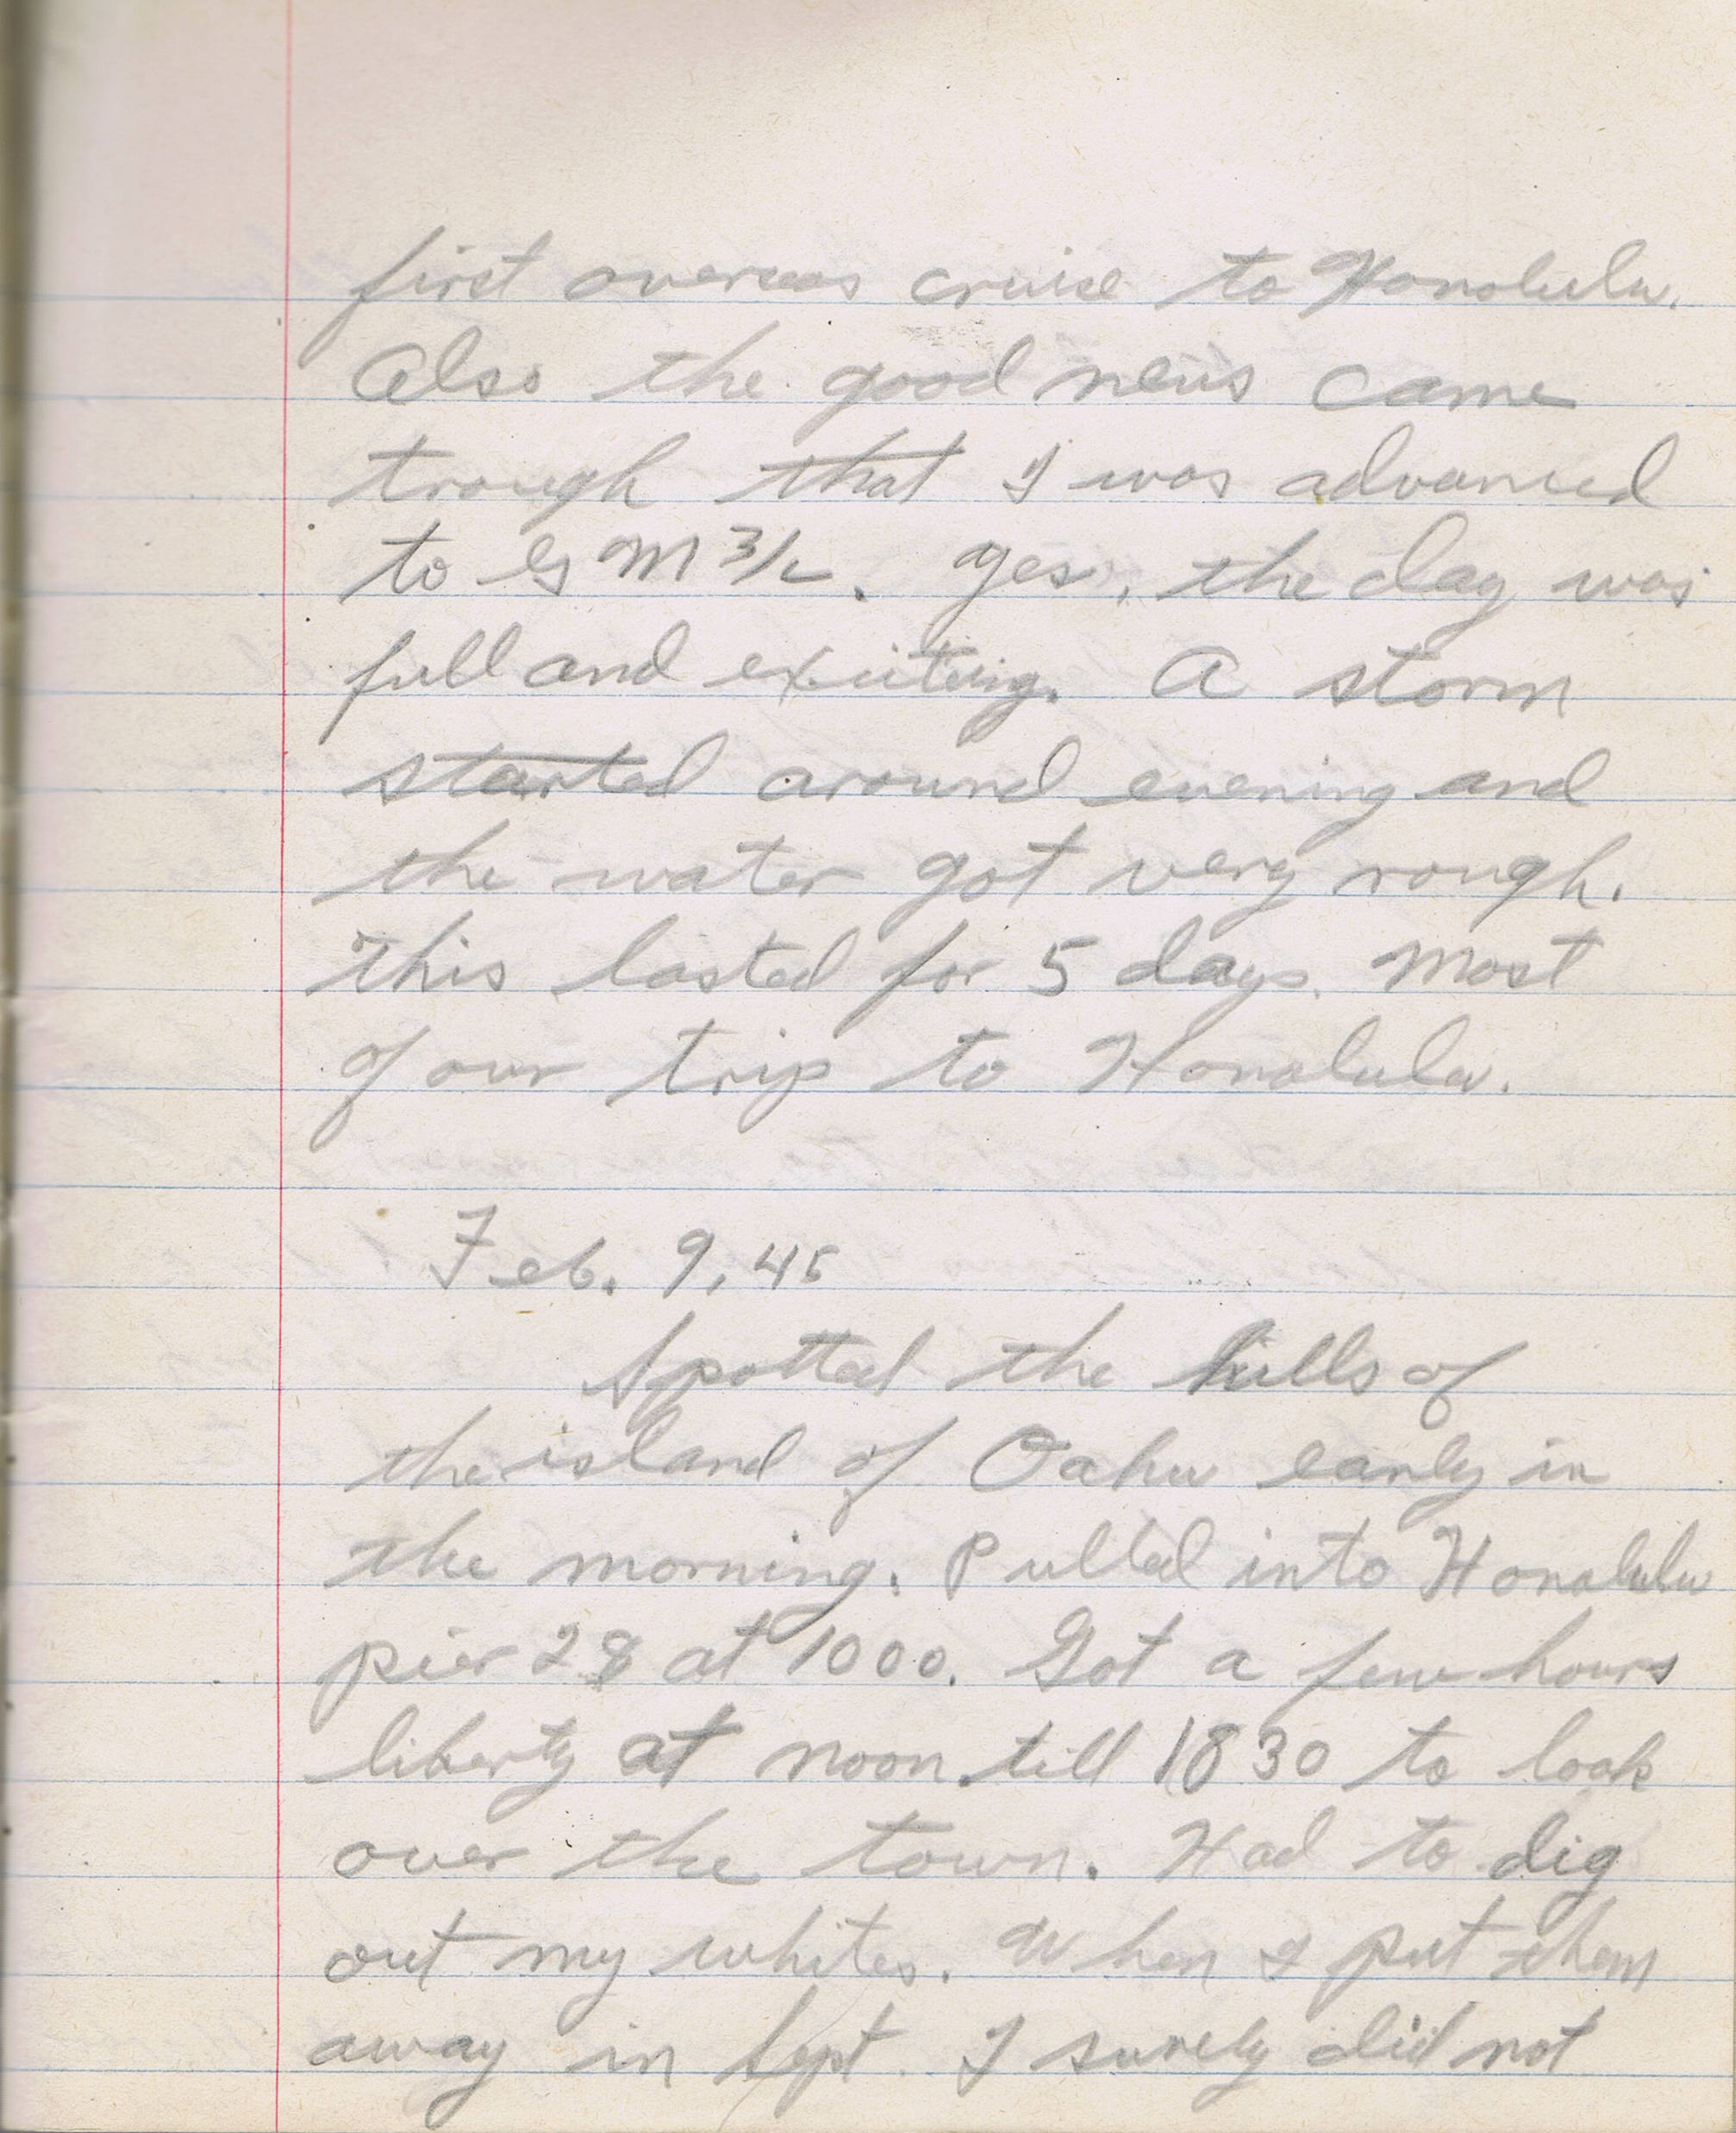 first overseas cruise to Honolulu.
Also the good news came
trough that I was advanced
to GM 3/c. Yes, the day was
full and exciting. A storm
started around evening and
the water got very rough.
This lasted for 5 days. Most
of our trip to Honolulu.
Feb. 9, 45
Spotted the hills of
the island of Oahu early in
the morning. Pulled into Honolulu
pier 28 at 1000. Got a few hours
liberty at noon till 1830 to look
over the town. Had to dig
out my whites. When I put them
away in Sept. I surely did not